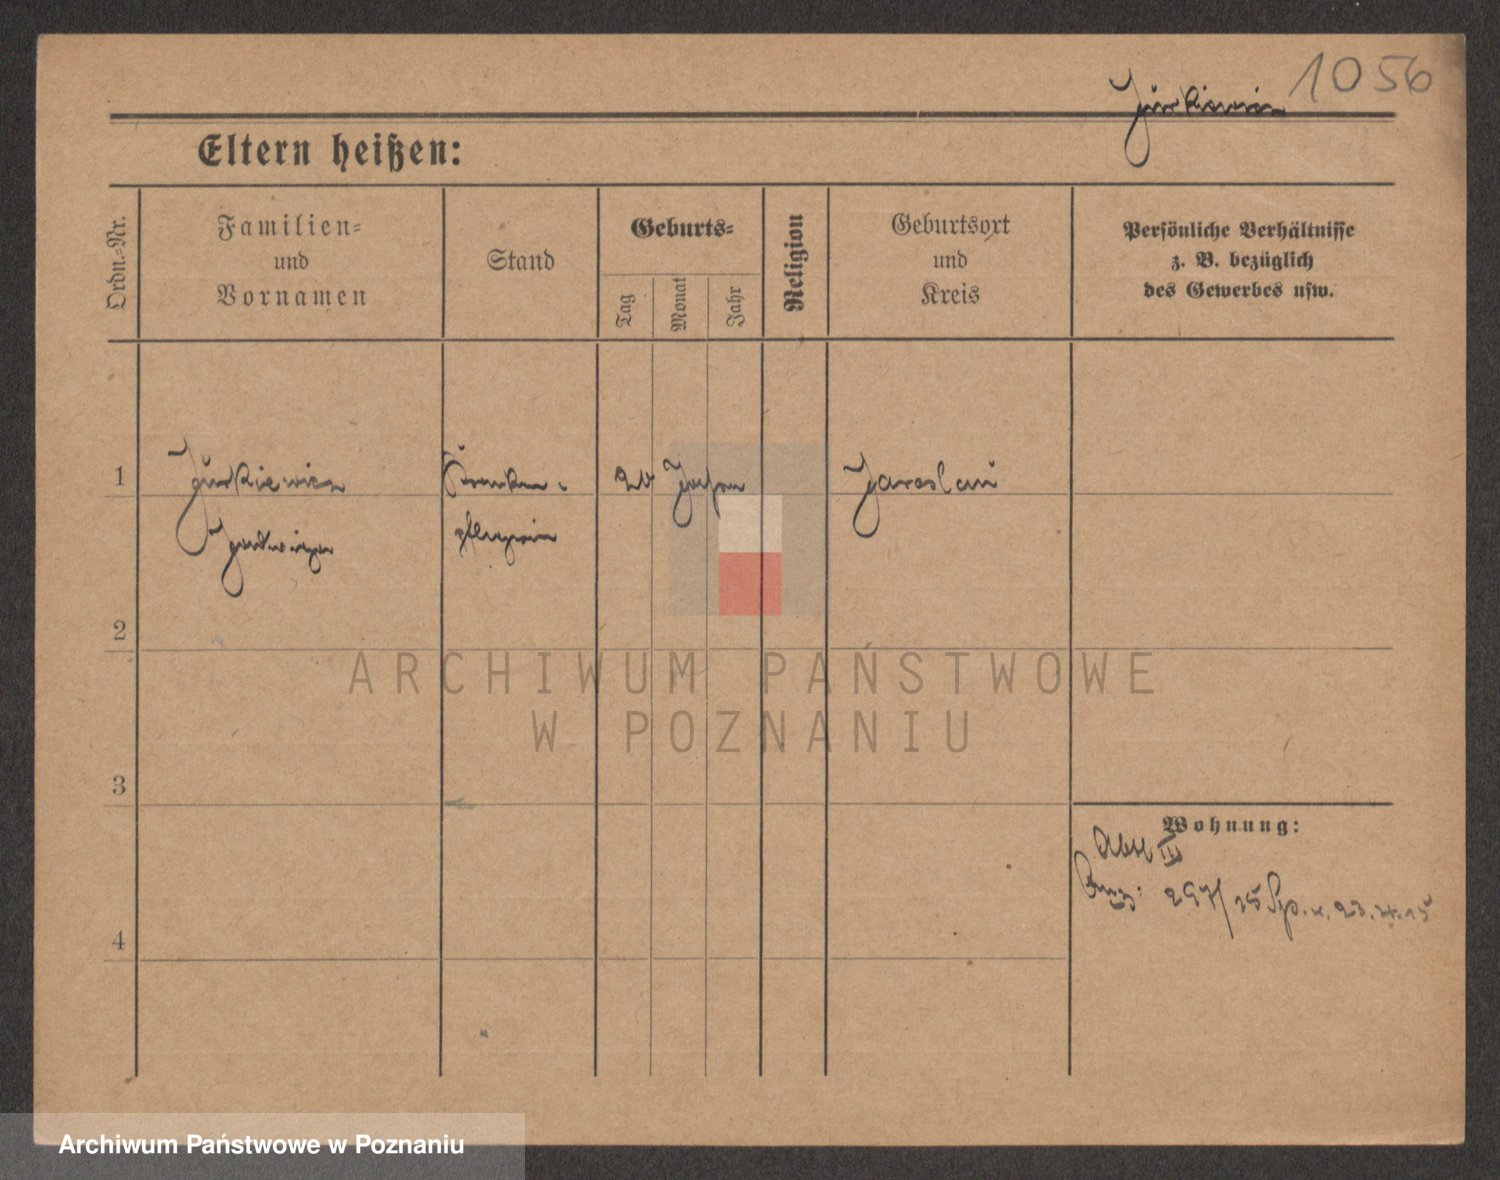 1056
Jurkiewicz
Eltern heißen:
Ordn.-Nr.
Familien-
und
Vornamen
Stand
Geburts-
Tag
Monat
Jahr
Religion
Geburtsort
und
Kreis
Persönliche Verhältnisse
z. B. bezüglich
des Gewerbes usw.
1
Jurkiewicz
Kranken-
Jaroslau
Jadwiga
pflegerin
2
3
4
Wohnung:
Abtl III
297/15
ARCHIWUM PAŃSTWOWE
W POZNANIU
Archiwum Państwowe w Poznaniu